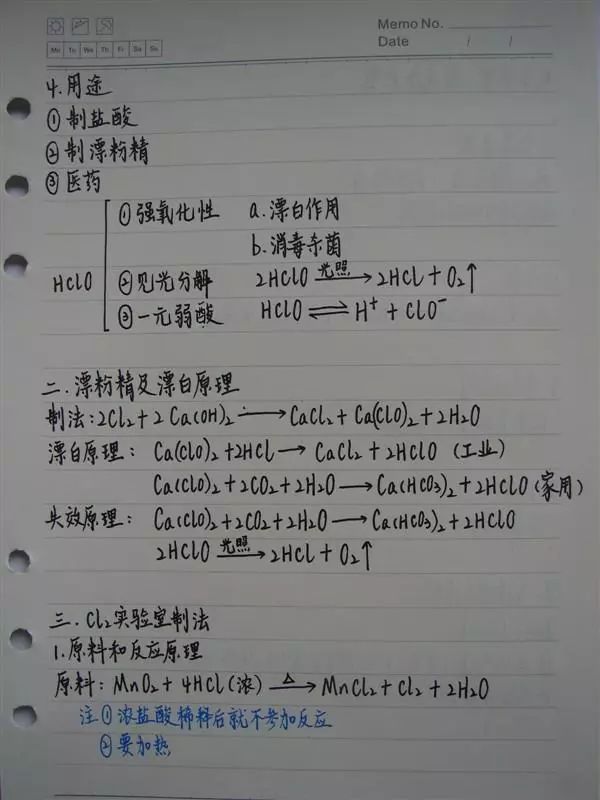 Memo No.
Date / /
Mo Tu We Th Fr Sa Su
4.用途
①制盐酸
②制漂粉精
③医药
HClO
①强氧化性 a.漂白作用
b.消毒杀菌
②见光分解 2HClO 光照→ 2HCl + O₂↑
③一元弱酸 HClO ⇌ H⁺ + ClO⁻
二.漂粉精及漂白原理
制法:2Cl₂+2Ca(OH)₂→CaCl₂+Ca(ClO)₂+2H₂O
漂白原理: Ca(ClO)₂+2HCl→CaCl₂+2HClO (工业)
Ca(ClO)₂+2CO₂+2H₂O→Ca(HCO₃)₂+2HClO(家用)
失效原理: Ca(ClO)₂+2CO₂+2H₂O→Ca(HCO₃)₂+2HClO
2HClO 光照→ 2HCl + O₂↑
三.Cl₂实验室制法
1.原料和反应原理
原料:MnO₂ + 4HCl(浓) △→ MnCl₂ + Cl₂ + 2H₂O
注①浓盐酸稀释后就不参加反应
②要加热